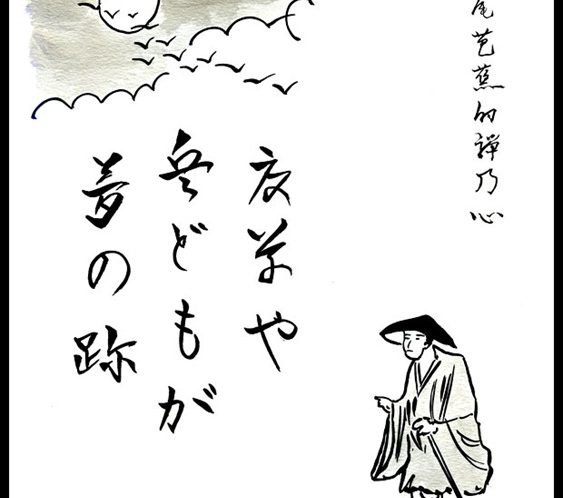 尾芭蕉的禪乃心
夏草や
兵どもが
夢の跡